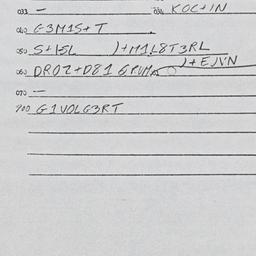 033 — 034 KOC+IN
040 G3M1S+T
050 S+1SL )+M1L8T3RL
060 DROZ+D81 GRUM )+EJVN
070 —
900 G1VOLG3RT